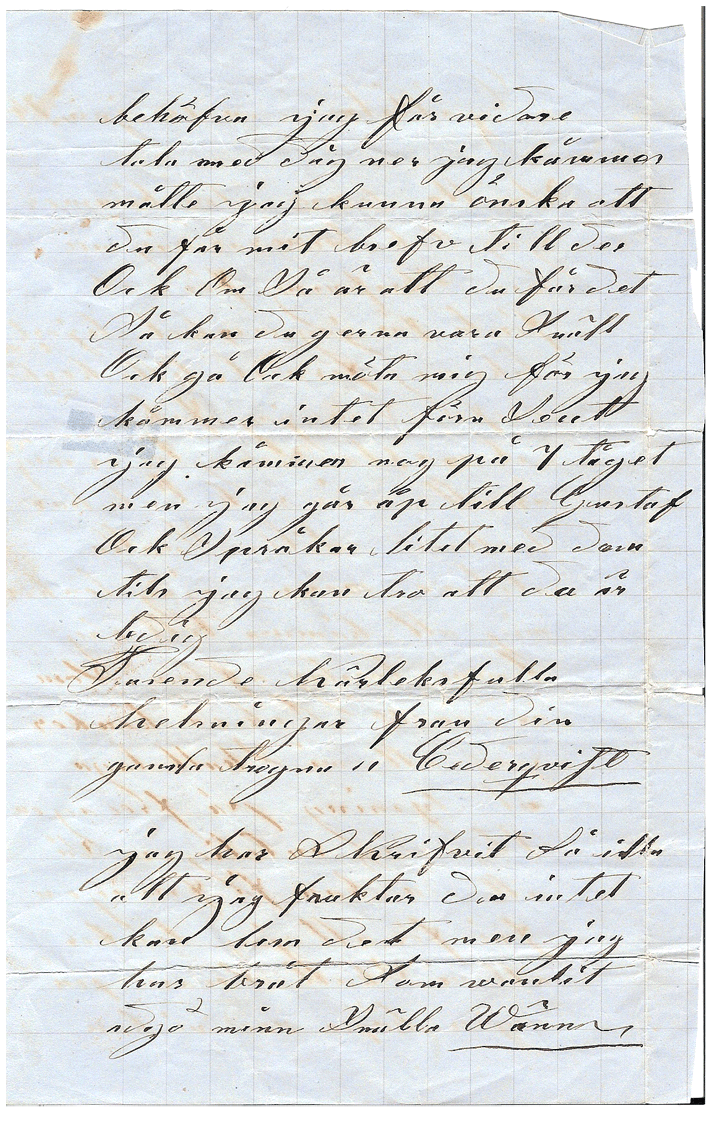 behöfva jag får vidare
tala med dig ner jag kämmer
måtte jag kunna önska att
du får mit bref v till dei
Ock Om Så är att du får det
Så kan du gerna vara Snäll
Ock gå Ock möta mig för jag
kämmer intet förn Sent
jag kämmer nog på 7 tåget
men jag går äp till Gustaf
Ock Språkar litet med dom
tils jag kan tro att du är
ledig
Tusende kärleksfulla
helsningar fran din
gamla trogna Cederqvist
jag har Skrifvit Så illa
att jag fruktar du intet
kan läsa det men jag
har bråt Som vanlit
adjö minn Snälla Wänn